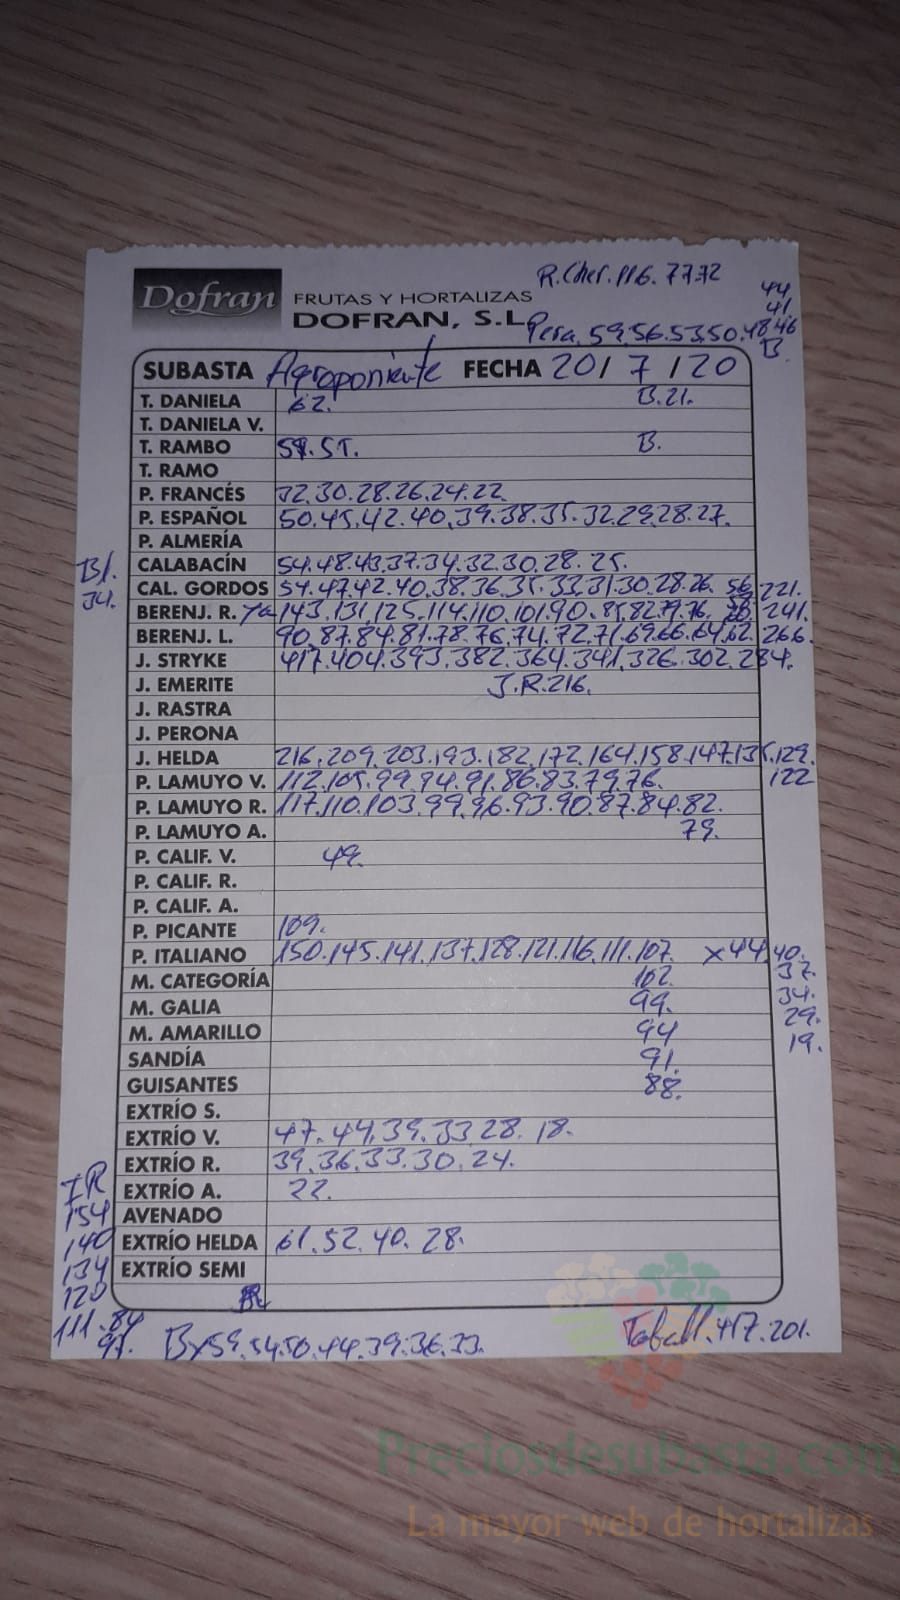 R.Cher.116.77.72
44
41.
Dofran FRUTAS Y HORTALIZAS
DOFRAN, S.L.
Pera.59.56.53.50.48.46
B.
SUBASTA Agroponiente FECHA 20/7/20
T. DANIELA 62. B.21.
T. DANIELA V.
T. RAMBO 59.51. B.
T. RAMO
P. FRANCÉS 32.30.28.26.24.22
P. ESPAÑOL 50.45.42.40.39.38.35.32.29.28.27.
P. ALMERÍA
Bl. CALABACÍN 54.48.43.37.34.32.30.28.25.
34. CAL. GORDOS 54.47.42.40.38.36.35.33.31.30.28.26. 56 221.
BERENJ. R. 143.131.125.114.110.101.90.85.82.79.76 241.
BERENJ. L. 90.87.84.81.78.76.74.72.71.69.66.64.62. 266.
J. STRYKE 417.404.393.382.364.341.326.302.284.
J. EMERITE J.R.216.
J. RASTRA
J. PERONA
J. HELDA 216.209.203.193.182.172.164.158.147.135.129.
P. LAMUYO V. 112.105.99.94.91.86.83.79.76. 122
P. LAMUYO R. 117.110.103.99.96.93.90.87.84.82.
P. LAMUYO A. 79.
P. CALIF. V. 49.
P. CALIF. R.
P. CALIF. A.
P. PICANTE 109.
P. ITALIANO 150.145.141.137.128.121.116.111.107. x44.40.
M. CATEGORÍA 102. 37.
M. GALIA 99. 34.
M. AMARILLO 94 29.
SANDÍA 91. 19.
GUISANTES 88.
EXTRÍO S.
EXTRÍO V. 47.44.39.33.28.18.
EXTRÍO R. 39.36.33.30.24.
IR EXTRÍO A. 22.
154 AVENADO
140 EXTRÍO HELDA 61.52.40.28.
134 EXTRÍO SEMI
120
111.84
Bx59.54.50.44.39.36.33.
Taball.417.201.
Preciosdesubasta.com
La mayor web de hortalizas